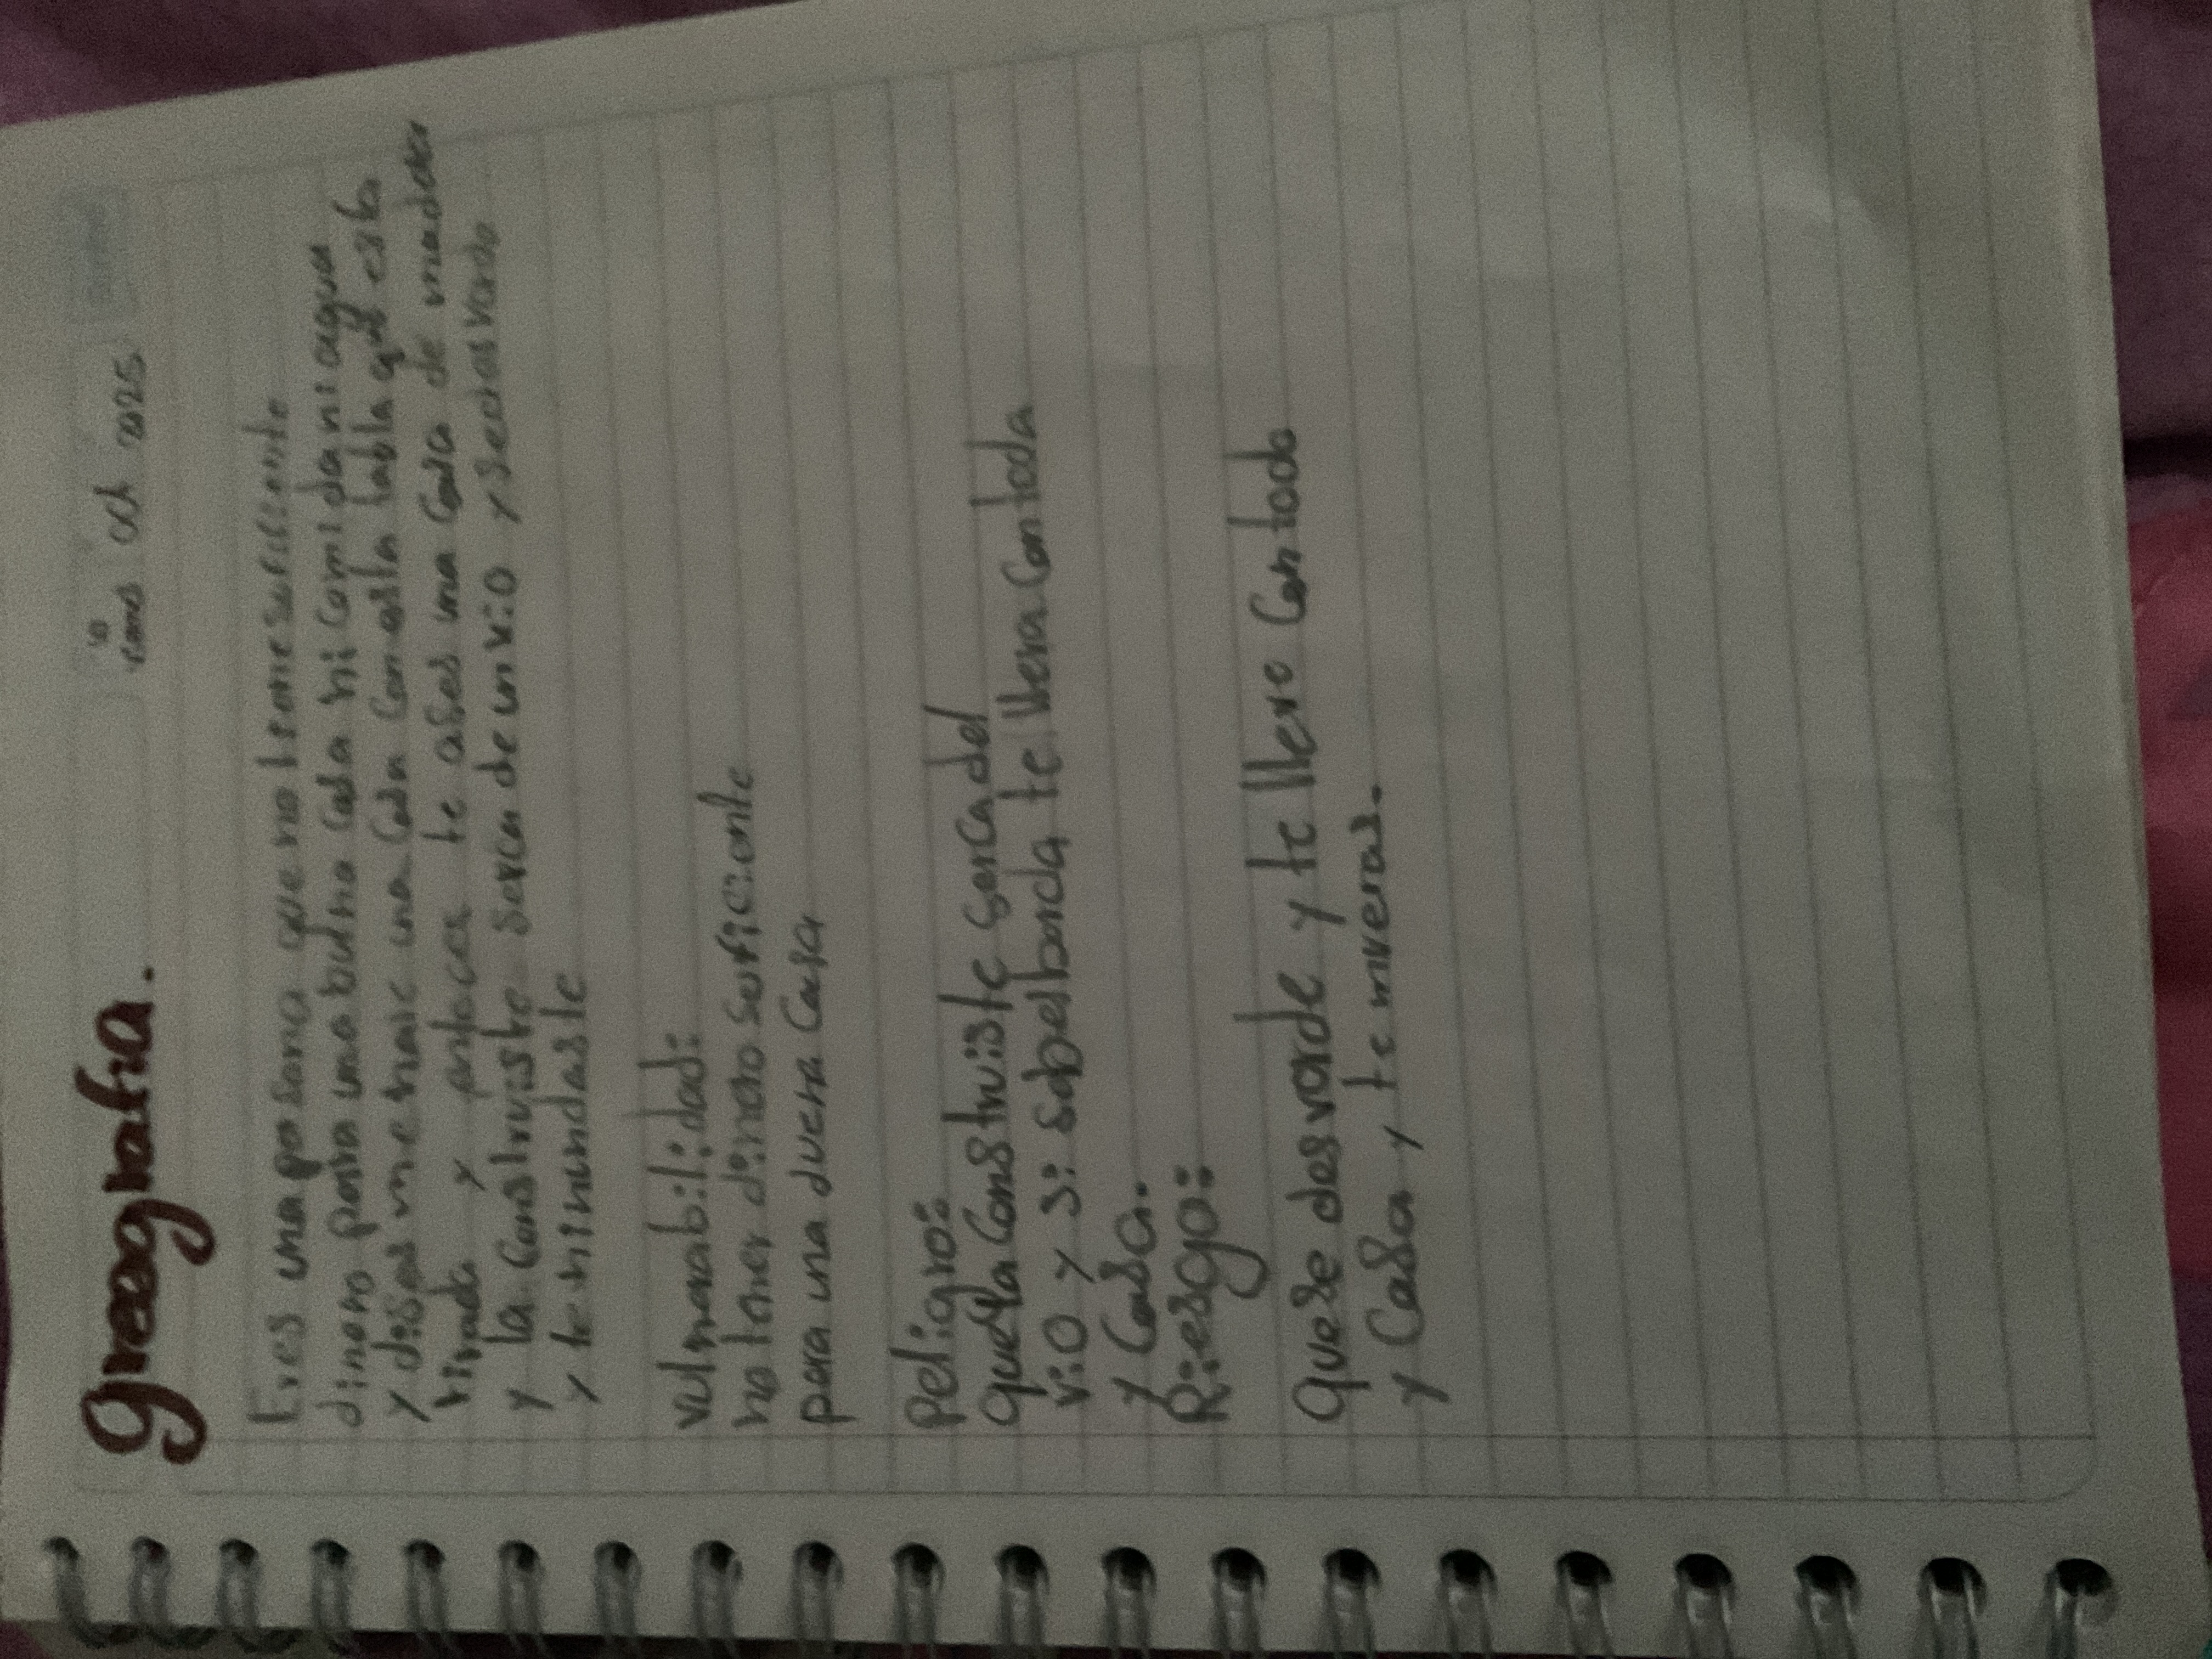 Greografia.
10 oct 2025
Eres una persona que no tiene suficiente
dinero para una buena casa ni comida ni agua
y dises me hare una casa con esta tabla que esta
tirada y entoces te ases una casa de madera
y la construyste serca de un rio y se desvordo
y te hinundaste
vulnerabilidad:
no tener dinero suficiente
para una buena casa
Peligro:
que la construiste serca del
rio y si sobelborda te lleva con toda
y casa.
Riesgo:
que se desvorde y te lleve con todo
y casa y te mueras.